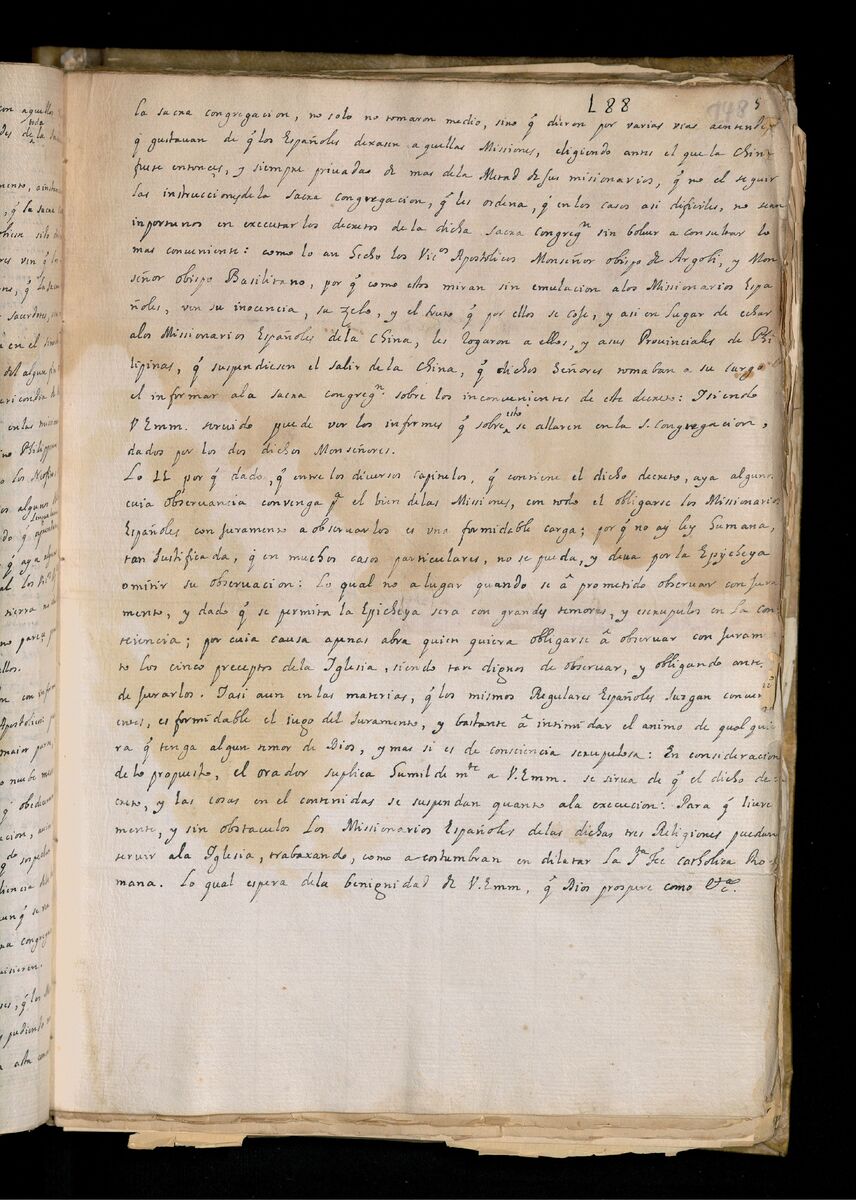 L88 748 5
la sacra congregacion, no solo no tomaron medio, sino q̃ dieron por varias vias aentender
q̃ gustauan de q̃ los Españoles dexasen aquellas Missiones, eligiendo antes el que la China
fuese entonces, y siempre priuada de mas dela Mitad de sus misionarios, q̃ no el seguir
las instrucciones dela sacra congregacion, q̃ les ordena, q̃ en los casos asi dificiles, no sean
inportunos en executar los decretos de la dicha sacra congregⁿ sin boluer a consultar lo
mas conueniente: como lo an hecho los Vicos Apostolicos Monseñor obispo de Argoli, y Mon
señor obispo Basilitano, por q̃ como ellos miran sin emulacion alos Missionarios Espa
ñoles, ven su inocencia, su zelo, y el fruto q̃ por ellos se coje, y asi en lugar de echar
alos Missionarios Españoles dela China, les rogaron a ellos, y asus Prouinciales de Phi
lipinas, q̃ suspendiesen el salir de la China, q̃ dichos Señores tomaban a su cargo
el informar ala sacra congregⁿ sobre los inconuenientes de este decreto: I siendo
V Emm. seruido puede ver los informes q̃ sobre esto se allaren en la S. Congregacion,
dados por los dos dichos Monseñores.
Lo II por q̃ dado, q̃ entre los diuersos capitulos, q̃ contiene el dicho decreto, aya alguno
cuia obseruancia conuenga pª el bien delas Missiones, con todo el obligarse los Missionarios
Españoles con Juramento a obseruarlos es vna formidable carga; por q̃ no ay ley humana,
tan Justificada, q̃ en muchos casos particulares, no se pueda, y deua por la Epicheya
omitir su obseruacion: Lo qual no a lugar quando se â prometido obseruar con Jura
mento, y dado q̃ se permita la Epicheya sera con grandes temores, y escrupulos en la con
sciencia; por cuia causa apenas abra quien quiera obligarse â obseruar con Juramẽ
to los cinco preceptos dela Iglesia, siendo tan dignos de obseruar, y obligando antes
de Jurarlos. I asi aun en las materias, q̃ los mismos Regulares Españoles Juzgan conueni
entes, es formidable el iugo del Juramento, y bastante â intimidar el animo de qualquie
ra q̃ tenga algun temor de Dios, y mas si es de consciencia scrupulosa: En consideracion
de lo propuesto, el orador suplica humildemte a V.Emm. se sirua de q̃ el dicho de
creto, y las cosas en el contenidas se suspendan quanto ala execucion: Para q̃ libre
mente, y sin obstaculos Los Missionarios Españoles delas dichas tres Religiones puedan
seruir ala Iglesia, trabaxando, como acostumbran en dilatar La Sta Fee catholica Ro
mana. Lo qual espera dela benignidad de V.Emm, q̃ Dios prospere como &c.